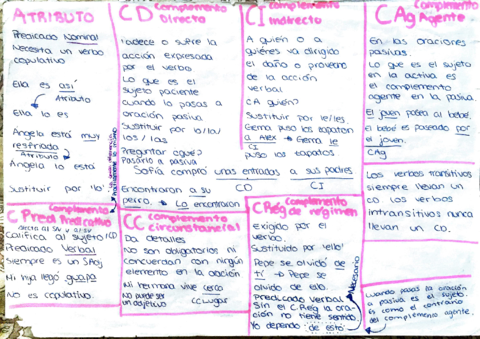 ATRIBUTO
Predicado Nominal
Necesita un verbo
copulativo
Ella es así
Atributo
Ella lo es
Angela está muy
resfriada
Atributo
Angela lo está
Sustituir por lo
CD Complemento
Directo
Padece o sufre la
acción expresada
por el verbo
Lo que es el
sujeto paciente
cuando lo pasas a
oración pasiva
Sustituir por lo/la/
los / las
Preguntar ¿qué?
Pasarlo a pasiva
Sofía compró unas entradas a sus padres
CD CI
Encontraron a su
perro. → La encontraron
CI Complemento
Indirecto
A quién o a
quiénes va dirigido
el daño o provecho
de la acción
verbal
¿A quién?
Sustituir por le/les.
Gema puso los zapatos
a Alex → Gema le
CI
puso los zapatos
CAg Complemento
Agente
En las oraciones
pasivas.
Lo que es el sujeto
en la activa es
el complemento
agente en la pasiva
El joven pasea al bebé.
El bebé es paseado por
el joven.
CAg
Los verbos transitivos
siempre llevan un
CD los verbos
intransitivos nunca
llevan un CD.
Cuando pasas la oración
a pasiva es el sujeto.
Es como el contrario
del complemento agente.
C Pred Complemento
Predicativo
Califica al sujeto/CD
Predicado Verbal
Siempre es un SAdj
Mi hija llegó guapa
No es copulativo.
CC Complemento
circunstancial
Da detalles
No son obligatorios ni
concuerdan con ningún
elemento en la oración
Mi hermana vive cerca
CCLugar
No puede ser
un adjetivo
CReg Complemento
de régimen
Exigido por el
verbo
Sustituido por "ello"
Pepe se olvidó de
ti → Pepe se
olvidó de ello.
Predicado verbal
Sin el CReg la ora-
ción no tiene sentido.
Yo dependo de esto
Necesario